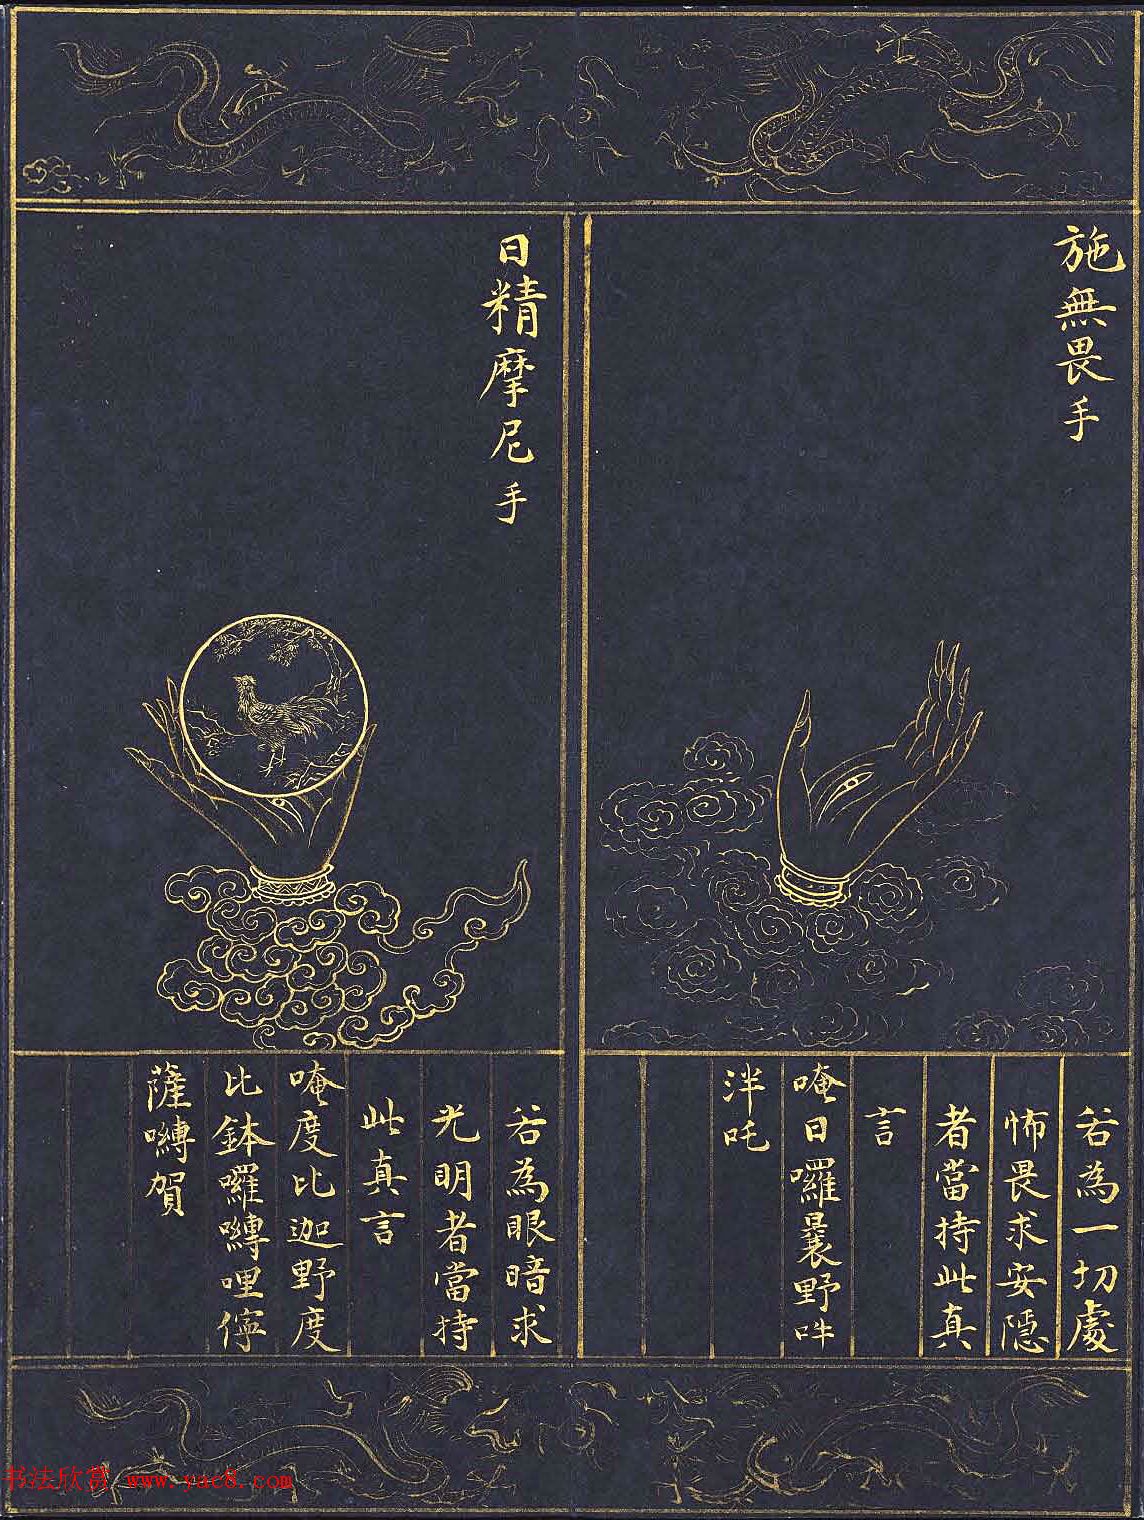 施無畏手
若為一切處
怖畏求安隱
者當持此真
言
唵日囉曩野吽
泮吒
日精摩尼手
若為眼暗求
光明者當持
此真言
唵度比迦野度
比鉢囉嚩哩儜
薩嚩賀
书法欣赏 www.yac8.com